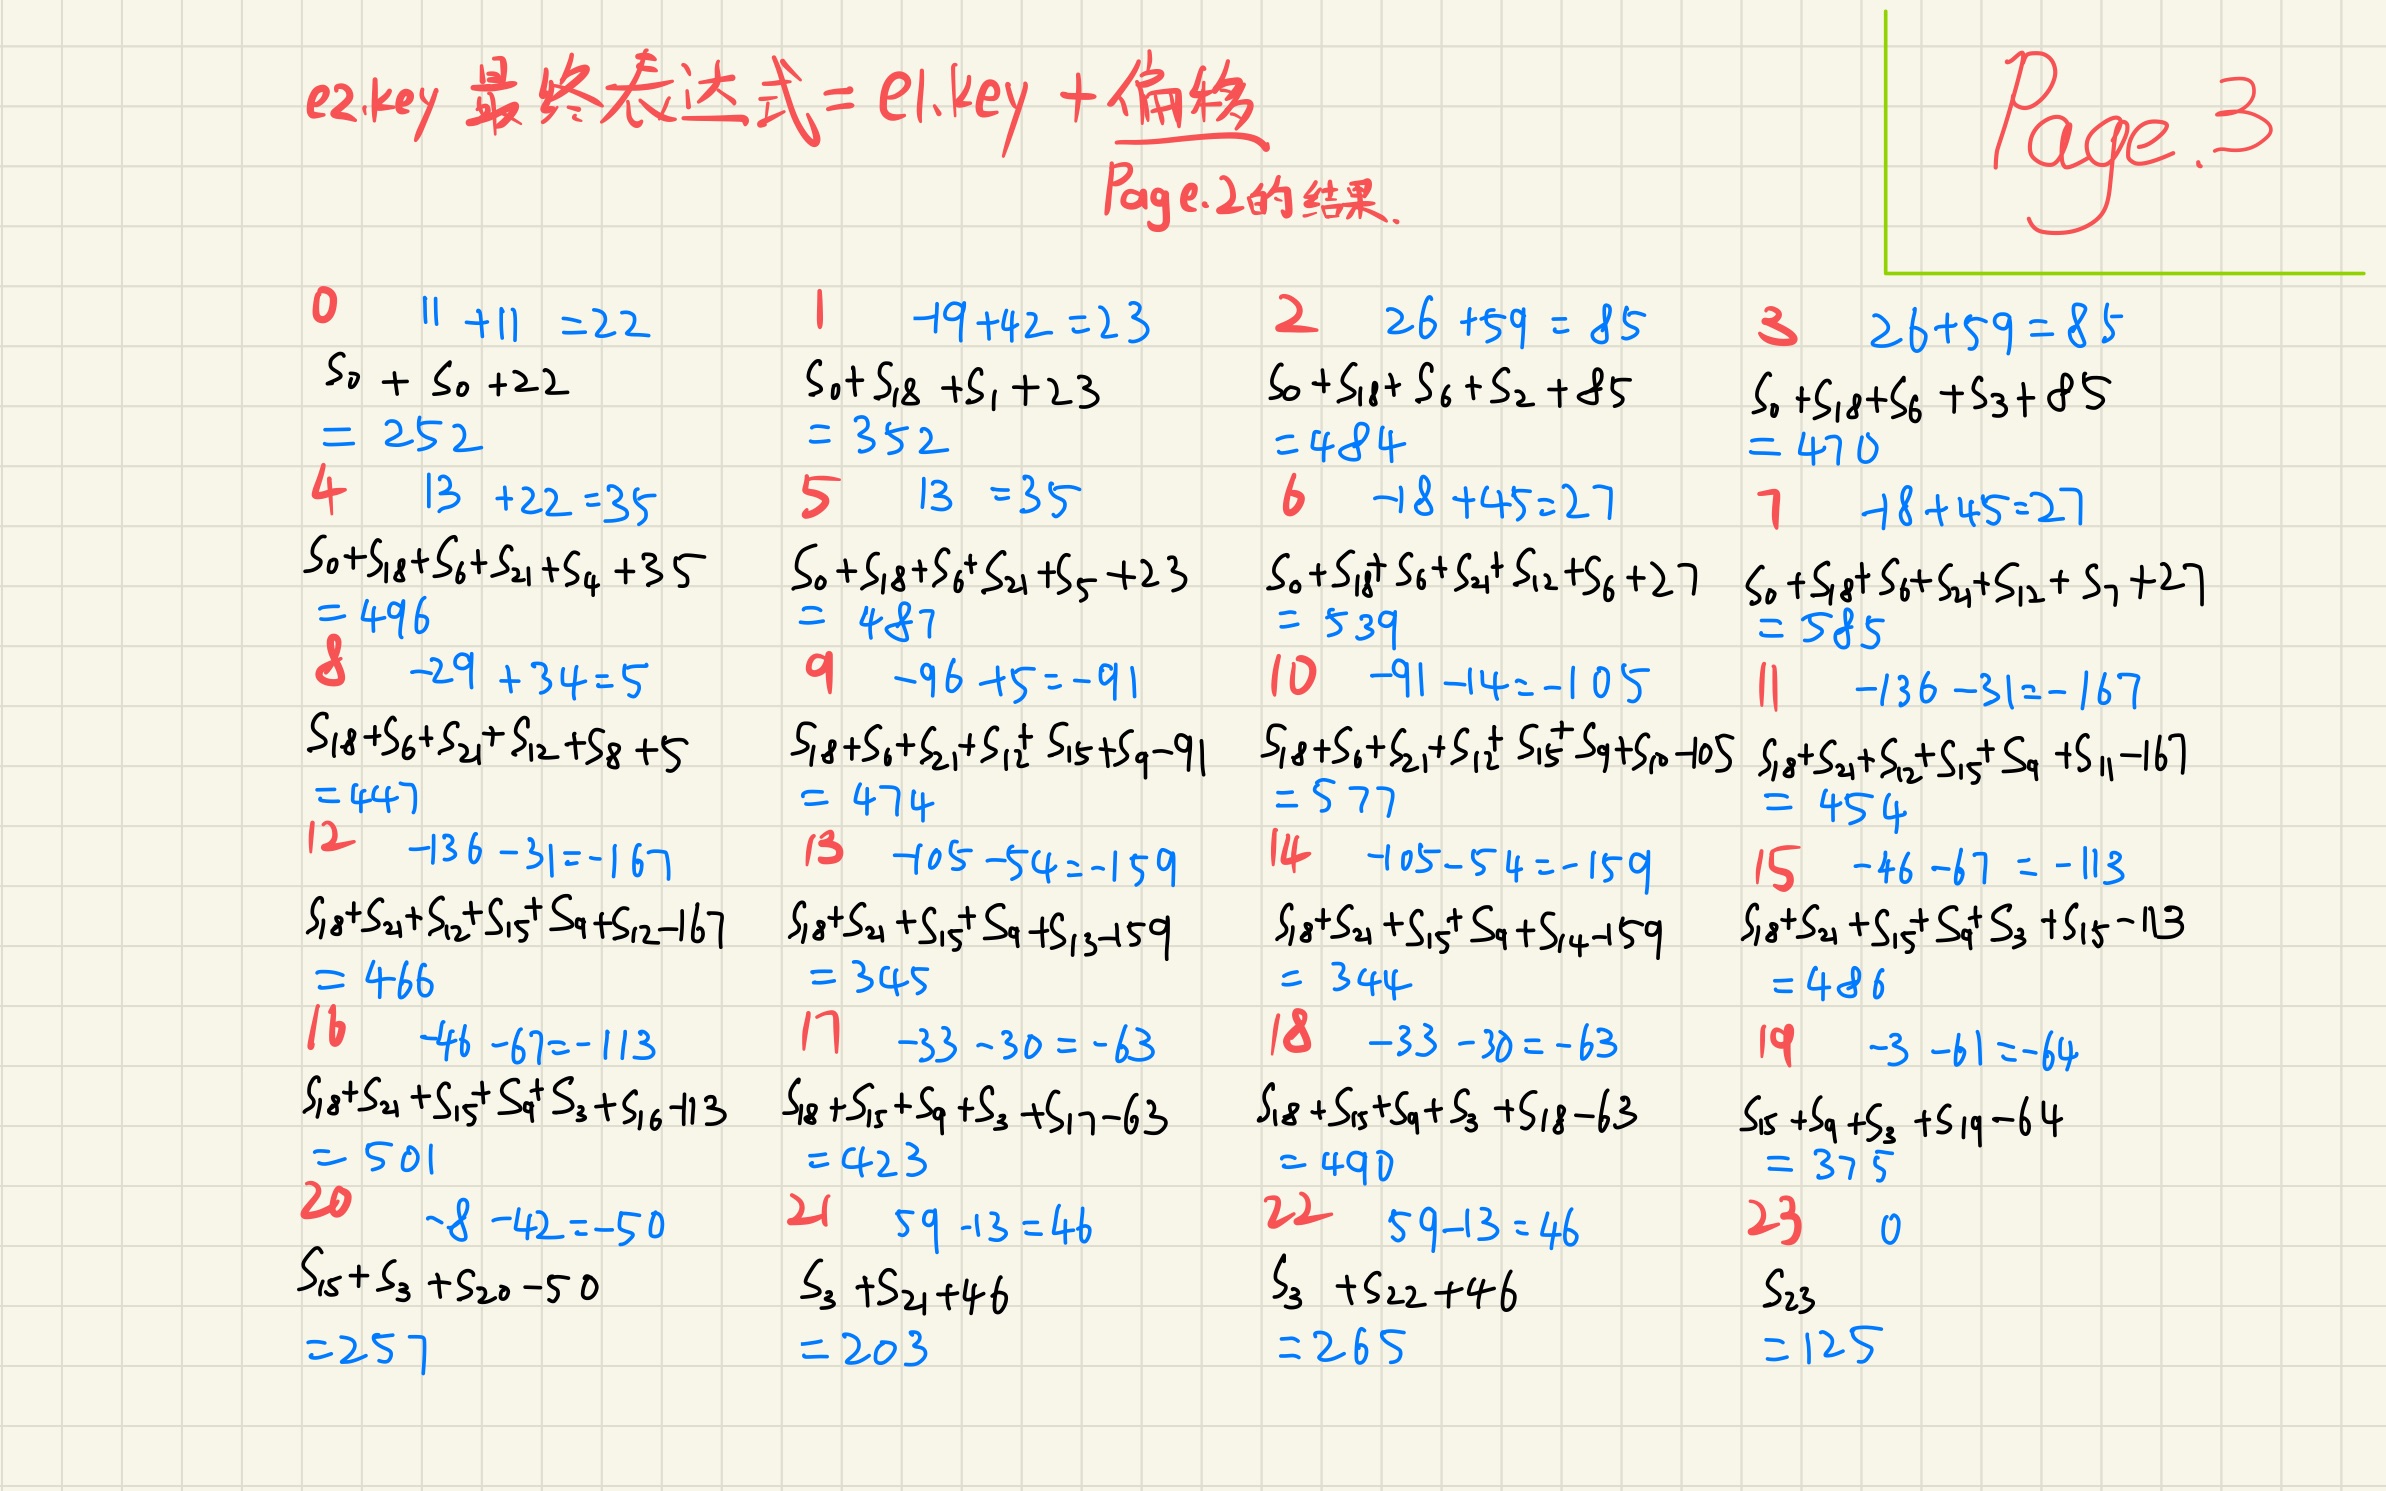 e2.key 最终表达式 = e1.key + 偏移
Page.2的结果.
Page.3
0 11 +11 =22
S0 + S0 +22
= 252
1 -19+42=23
S0+S18 +S1 +23
= 352
2 26 +59 = 85
S0 +S18+ S6 +S2 +85
=484
3 26+59=85
S0 +S18+S6 +S3+85
= 470
4 13 +22=35
S0+S18+S6+S21+S4 +35
=496
5 13 =35
S0+S18+S6+S21+S5+23
= 487
6 -18+45=27
S0+S18+S6+S21+S12+S6+27
= 539
7 -18+45=27
S0+S18+S6+S21+S12+S7+27
=585
8 -29 +34=5
S18+S6+S21+S12+S8+5
=447
9 -96 +5=-91
S18+S6+S21+S12+S15+S9-91
= 474
10 -91-14=-105
S18+S6+S21+S12+S15+S9+S10-105
=577
11 -136-31=-167
S18+S21+S12+S15+S9+S11-167
= 454
12 -136-31=-167
S18+S21+S12+S15+S9+S12-167
= 466
13 -105-54=-159
S18+S21+S15+S9+S13-159
= 345
14 -105-54=-159
S18+S21+S15+S9+S14-159
= 344
15 -46-67 = -113
S18+S21+S15+S9+S3+S15-113
=486
16 -46-67=-113
S18+S21+S15+S9+S3+S16-113
= 501
17 -33-30=-63
S18+S15+S9+S3+S17-63
=423
18 -33-30=-63
S18+S15+S9+S3+S18-63
=490
19 -3-61=-64
S15+S9+S3+S19-64
= 375
20 -8-42=-50
S15+S3+S20-50
=257
21 59-13=46
S3 +S21+46
=203
22 59-13=46
S3 +S22+46
=265
23 0
S23
=125